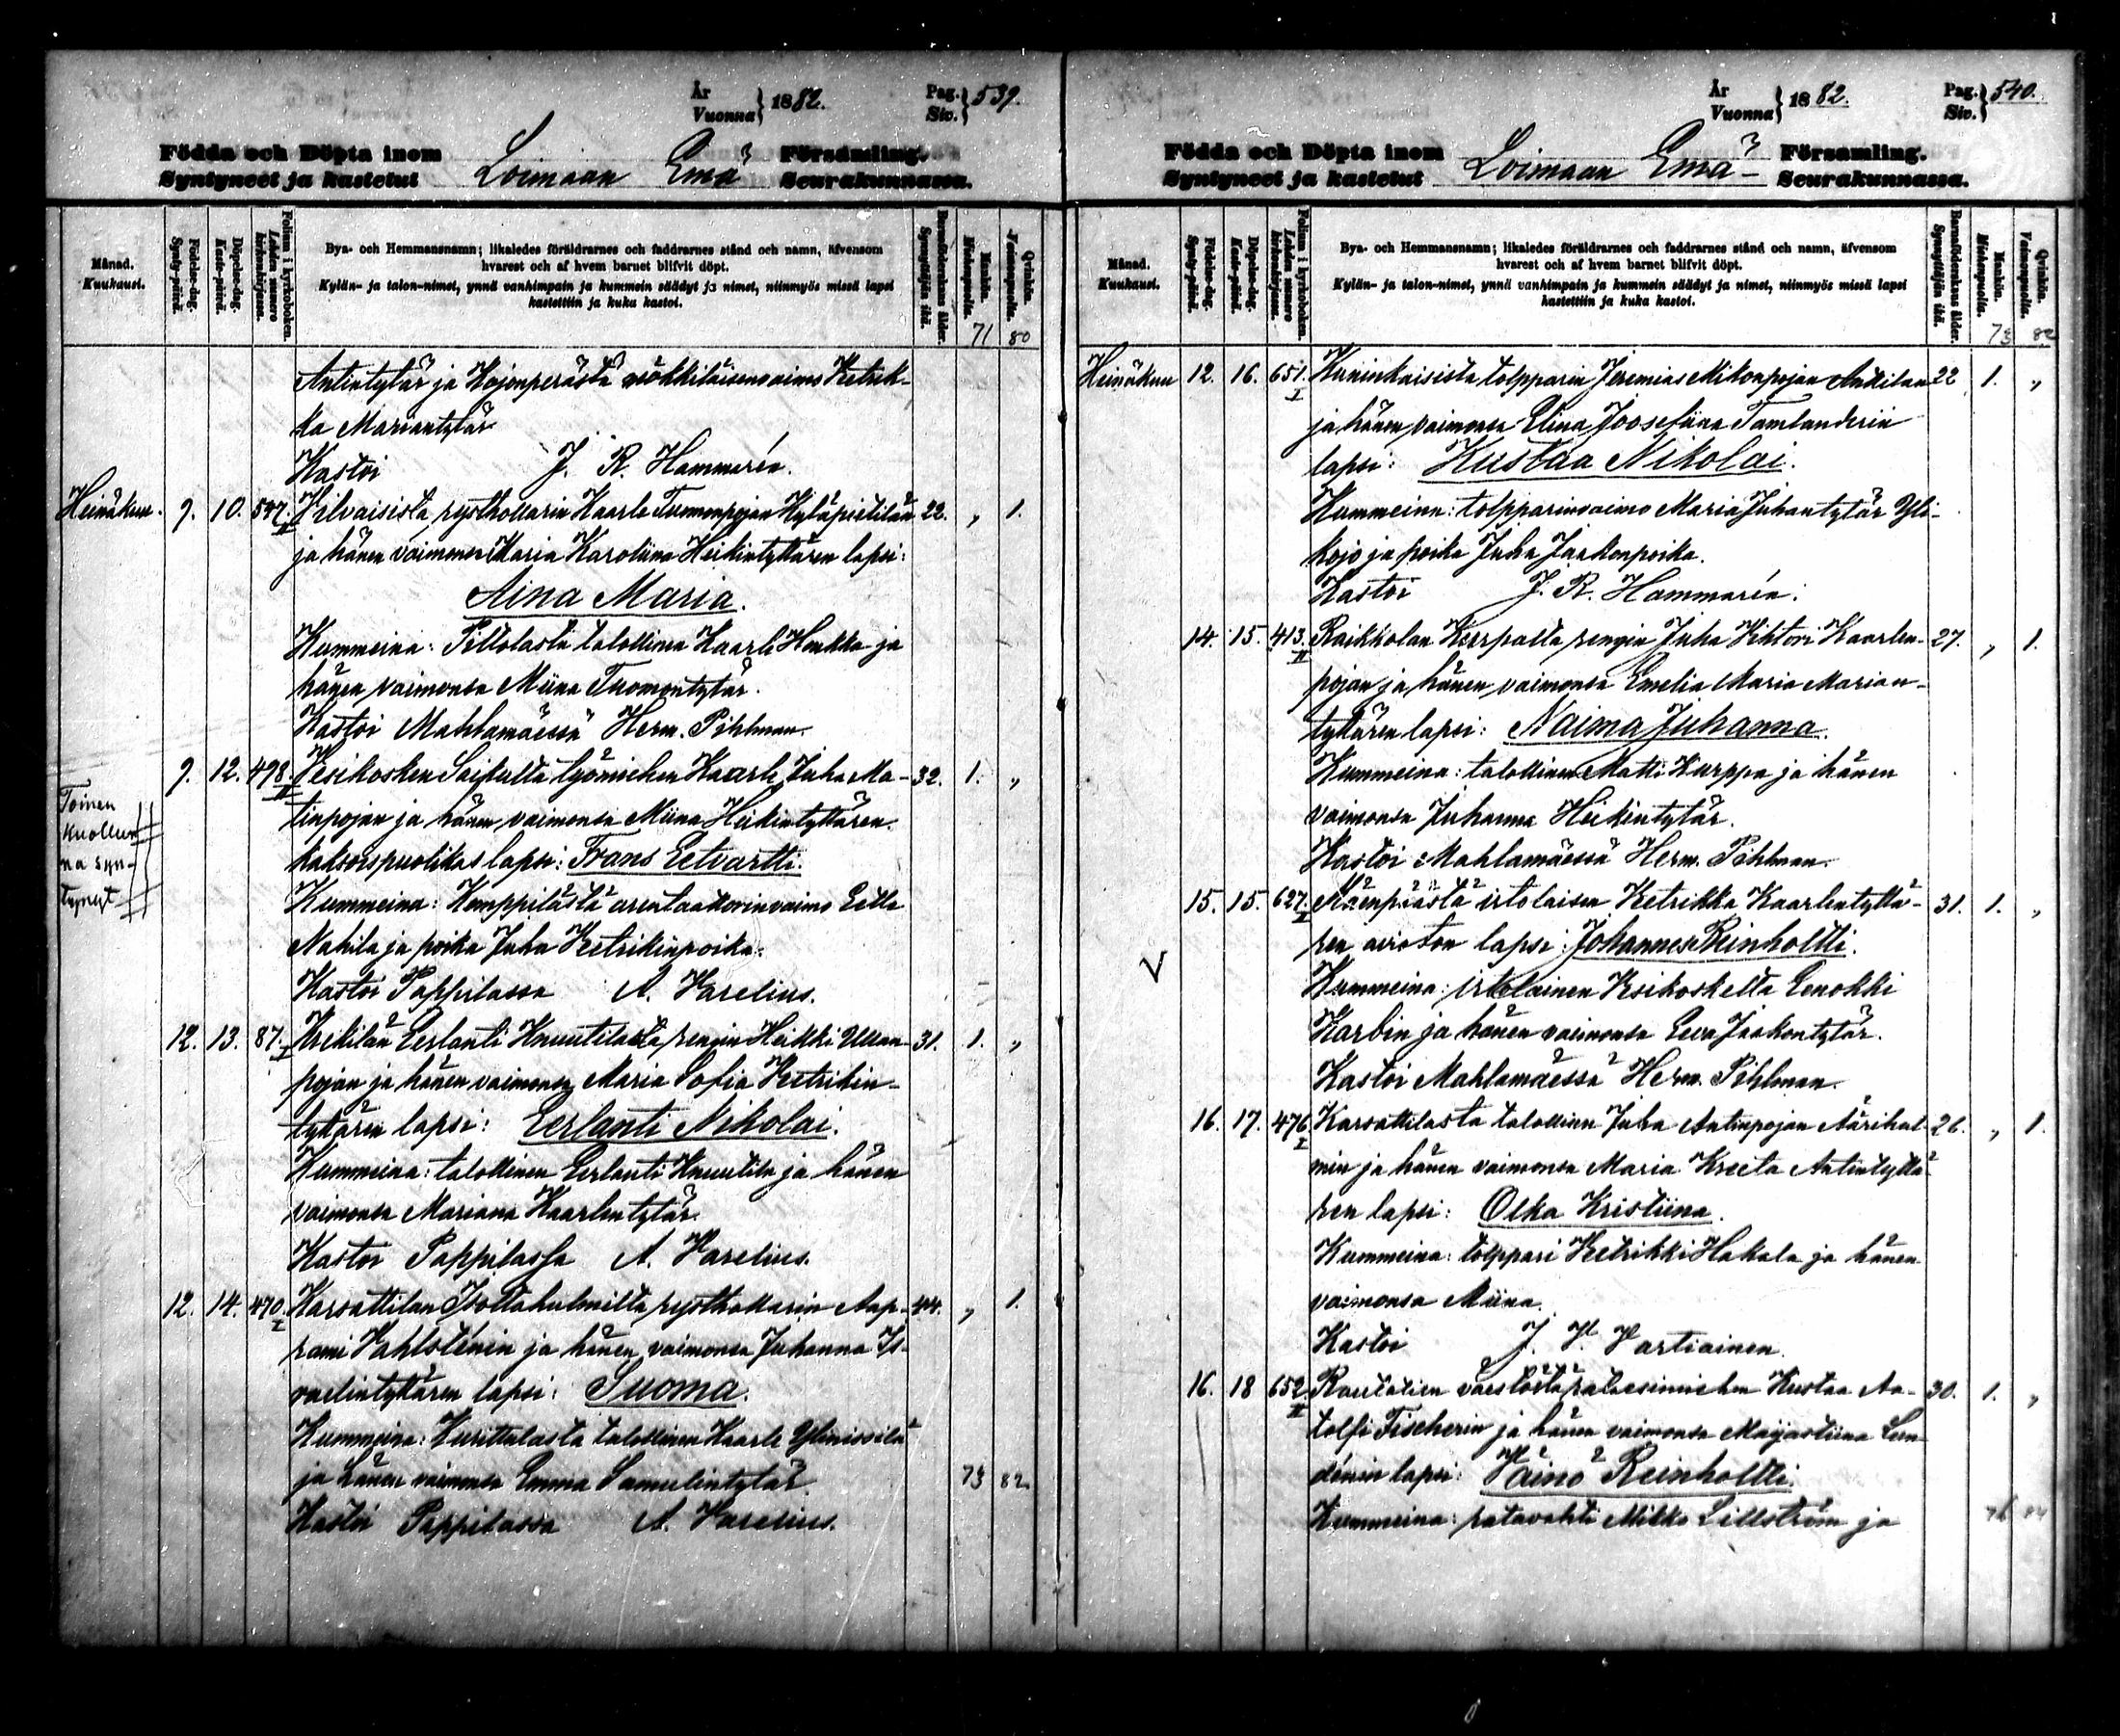 År
Vuonna } 1882.
Pag.
Siv. } 539.
Födda och Döpta inom
Syntyneet ja kastetut
Loimaan Emä
Församling.
Seurakunnassa.
Månad.
Kuukausi.
Födelse-dag.
Synty-päivä.
Döpelse-dag.
Kaste-päivä.
Folium i kyrkoboken.
Lehden numero kirkonkirjassa.
Bya- och Hemmansnamn; likaledes föräldrarnes och faddrarnes stånd och namn, äfvensom
hvarest och af hvem barnet blifvit döpt.
Kylän- ja talon-nimet, ynnä vanhimpain ja kummein säädyt ja nimet, niinmyös missä lapsi
kastettiin ja kuka kastoi.
Barnaföderskans ålder.
Synnyttäjän ikä.
Mankön.
Miehenpuolia.
Qvinkön.
Vaimonpuolia.
71 80
Antintytär ja Kojonperästä mökkiläisenvaimo Ketruk-
ka Mariantytär
Kastoi J. R. Hammarén.
Heinäkuu. 9. 10. 547. II Vilvaisista rysthollarin Kaarle Tuomonpojan Kyläpietilän 22. „ 1.
ja hänen vaimonsa Maria Karoliina Heikintyttären lapsi:
Aina Maria.
Kummeina: Peltolasta talollinen Kaarle Honkka ja
hänen vaimonsa Miina Tuomontytär.
Kastoi Mahlamäessä Herm. Pihlman.
9. 12. 498. II Vesikosken työmiehen Kaarle Juha Ma- 32. 1. „
tinpojan ja hänen vaimonsa Miina Heikintyttären
kaksoispuolikas lapsi: Frans Eetvartti.
Toinen
kuollun
na syn-
tynyt
Kummeina: Kemppilästä arentaattorinvaimo Eella
Nahila ja poika Juha Ketrikinpoika.
Kastoi Pappilassa A. Varelius.
12. 13. 87. I Krekilän Eerlanti Knuutilasta, rengin Heikki Ullan- 31. 1. „
pojan ja hänen vaimonsa Maria Sofia Ketrikin-
tyttären lapsi: Eerlanti Nikolai.
Kummeina: talollinen Eerlanti Knuutila ja hänen
vaimonsa Mariana Kaarlentytär.
Kastoi Pappilassa A. Varelius.
12. 14. 470. I Karsattilan Isottahulmilta rysthollarin Aap- 44. „ 1.
rami Vahlsténin ja hänen vaimonsa Juhanna Is-
raelintyttären lapsi: Suoma.
Kummeina: Kurittulasta talollinen Kaarle Ylinissilä
ja hänen vaimonsa Emma Samulintytär.
Kastoi Pappilassa A. Varelius.
73 82
År
Vuonna } 1882.
Pag.
Siv. } 540.
Födda och Döpta inom
Syntyneet ja kastetut
Loimaan Emä-
Församling.
Seurakunnassa.
Månad.
Kuukausi.
Födelse-dag.
Synty-päivä.
Döpelse-dag.
Kaste-päivä.
Folium i kyrkoboken.
Lehden numero kirkonkirjassa.
Bya- och Hemmansnamn; likaledes föräldrarnes och faddrarnes stånd och namn, äfvensom
hvarest och af hvem barnet blifvit döpt.
Kylän- ja talon-nimet, ynnä vanhimpain ja kummein säädyt ja nimet, niinmyös missä lapsi
kastettiin ja kuka kastoi.
Barnaföderskans ålder.
Synnyttäjän ikä.
Mankön.
Miehenpuolia.
Qvinkön.
Vaimonpuolia.
73 82
Heinäkuu 12. 16. 651. I Kuninkaisista tolpparin Jeremias Mikonpojan Ankilan 22 1. „
ja hänen vaimonsa Elina Joosefiina Tamlanderin
lapsi: Kustaa Nikolai.
Kummeina: tolpparinvaimo Maria Juhantytär Yli-
kojo ja poika Juha Jaakonpoika.
Kastoi J. R. Hammarén.
14. 15. 413. II Raikkolan Kurpalta rengin Juha Vihtori Kaarlen- 27. „ 1.
pojan ja hänen vaimonsa Emelia Maria Marian-
tyttären lapsi: Naima Juhanna.
Kummeina: talollinen Matti Kurppa ja hänen
vaimonsa Juhanna Heikintytär.
Kastoi Mahlamäessä Herm. Pihlman.
15. 15. 627. I Mäenpäästä irtolaisen Ketrikka Kaarlentyttä- 31. 1. „
ren aviston lapsi: Johannes Reinholtti.
Kummeina: irtolainen Vesikoskelta Eenokki
Karbin ja hänen vaimonsa Eeva Jaakontytär.
Kastoi Mahlamäessä Herm. Pihlman.
16. 17. 476. I Karsattilasta talollisen Juha Antinpojan Äärihul- 26. „ 1.
min ja hänen vaimonsa Maria Kreeta Antintyttä-
ren lapsi: Olka Kristiina.
Kummeina: tolppari Ketrikki Hakala ja hänen
vaimonsa Miina.
Kastoi J. V. Vartiainen.
16. 18 652. II Rautatien väestöstä rataesimiehen Kustaa Aa- 30. 1. „
tolfi Fischerin ja hänen vaimonsa Majastiina Lin
dénin lapsi: Väinö Reinholtti.
Kummeina: ratavahti Mikko Lillström ja